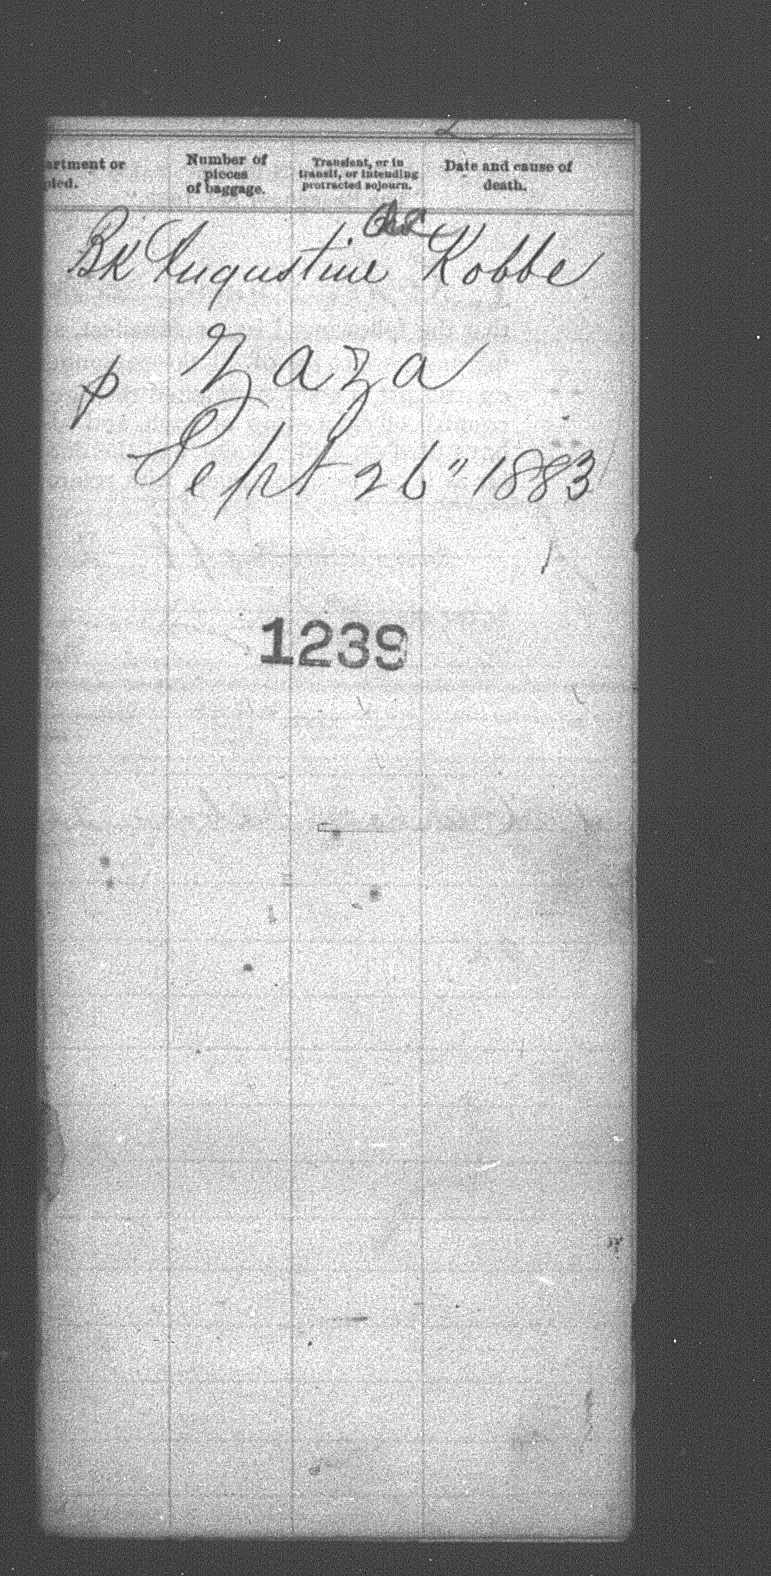 Number of pieces of baggage.
Transient, or in transit, or intending protracted sojourn.
Date and cause of death.
Bk Augustine Kobbe
p Zaza
Sept 26" 1883
1239